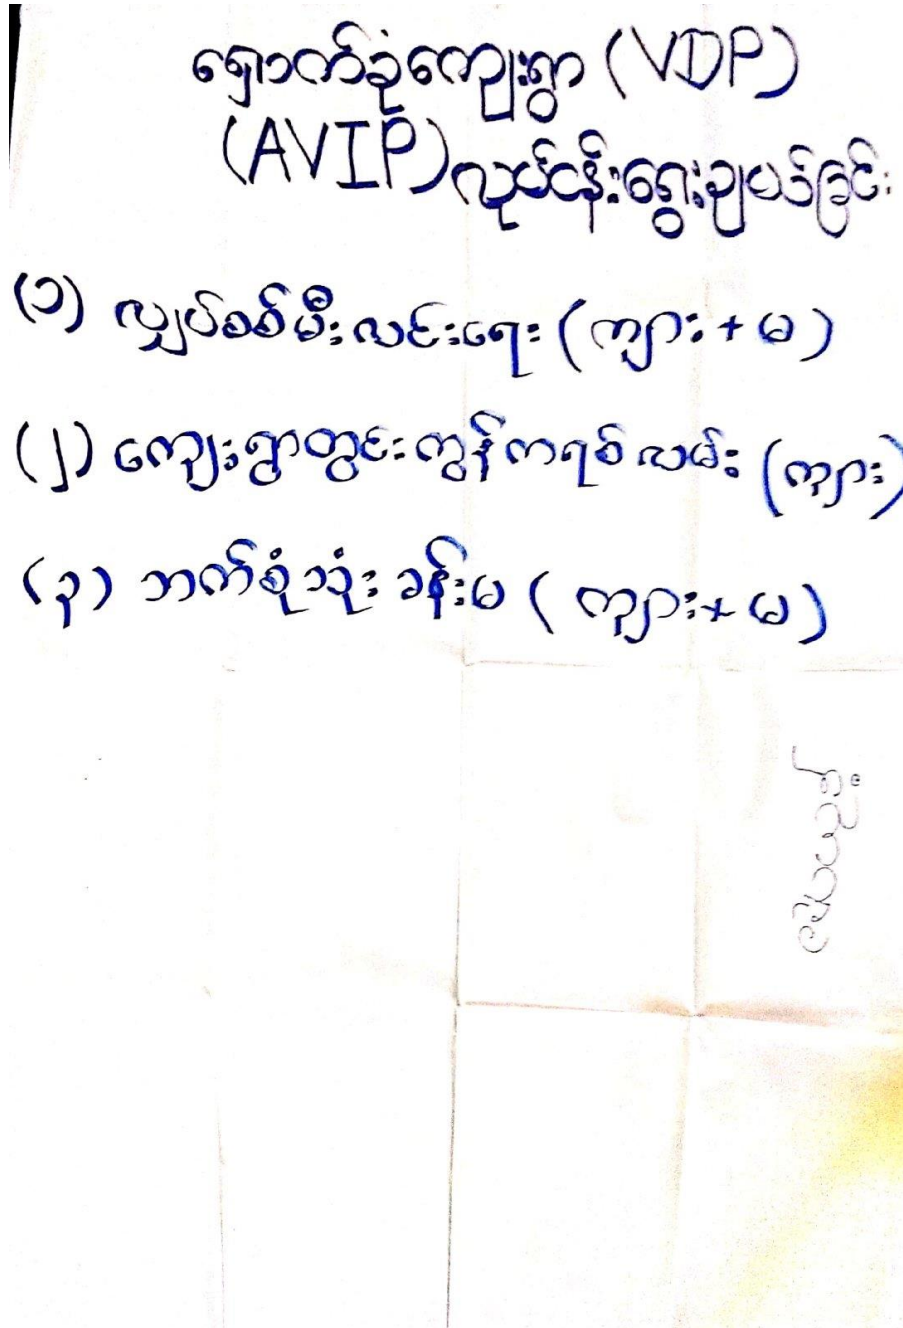 ရှောက်ခုံကျေးရွာ (VDP)
(AVIP) လုပ်ငန်းရွေးချယ်ခြင်း
(၁) လျှပ်စစ်မီးလင်းရေး (ကျား + မ)
(၂) ကျေးရွာတွင်းကွန်ကရစ်လမ်း (ကျား)
(၃) ဘက်စုံသုံးခန်းမ (ကျား + မ)